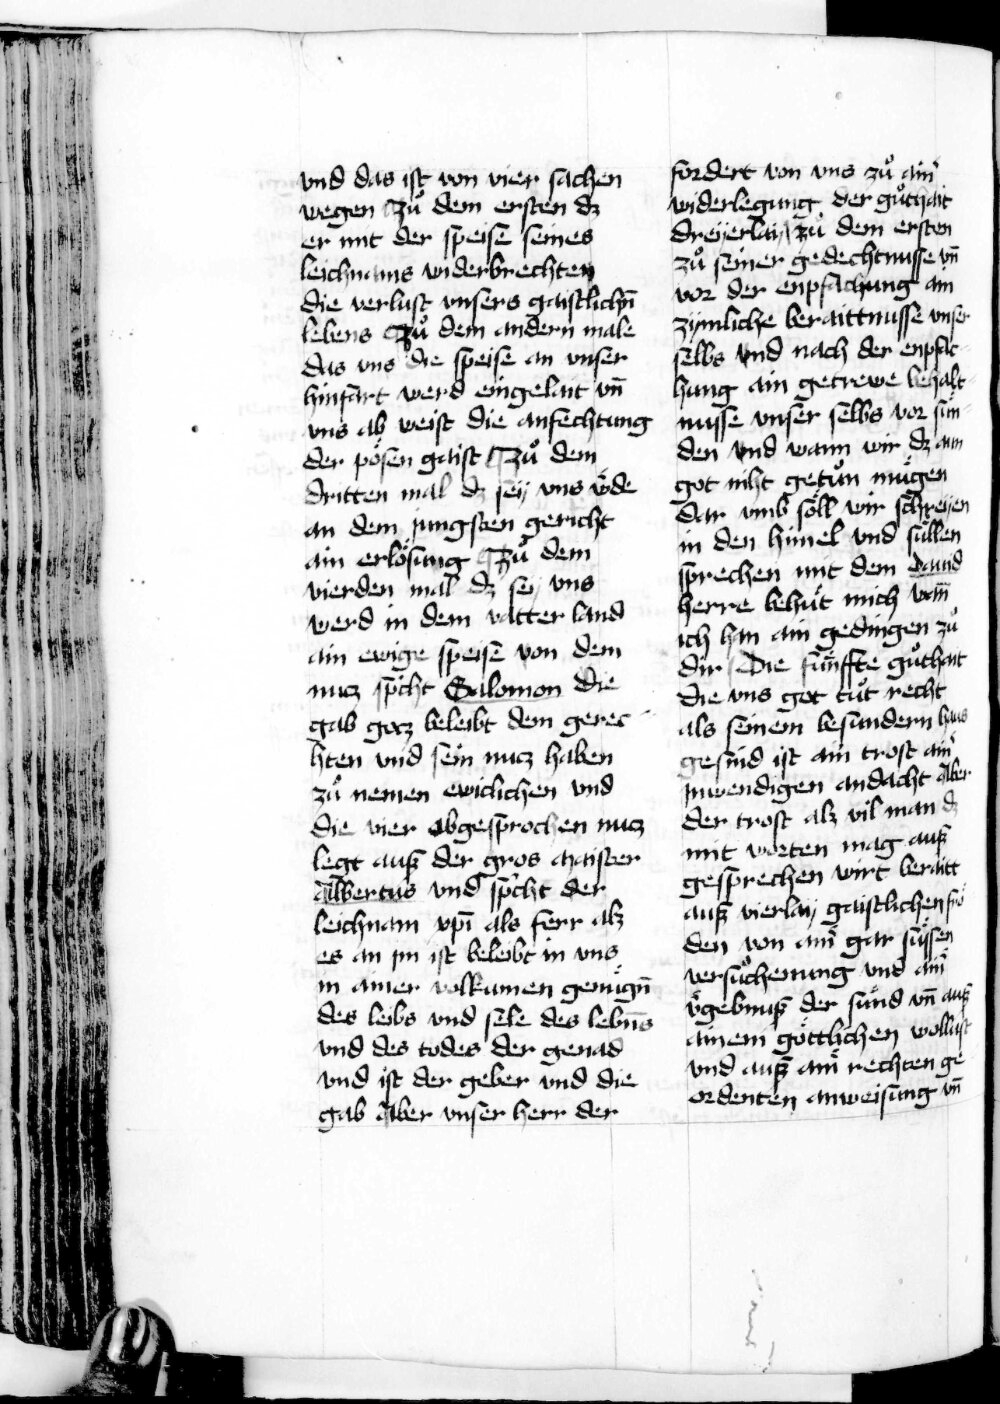 vnd das ist von vier sachen
wegen Zuͦ dem ersten dz
er mit der speise seines
leichnams widerbrechten
die verlust vnsers gaistlichn̄
lebens Zuͦ dem andern male
das vns die speise an vnser
hinfart werd eingelait vn̄
vns ab weist die anfechtung
der poͤsen gaist Zuͦ dem
dritten mal dz seÿ vns
an dem jungsten gericht
ain erloͤsung Zuͦ dem
vierden mal dz seÿ vns
werd in dem vatter land
ain ewige speise von dem
nucz spͥcht Salomon die
gab gotz beleibt dem gerec
hten vnd sein nucz haben
zuͦ nemen ewiclichen vnd
die vier obgesprochen nucz
legt auß der gros maister
Albertus vnd spͥcht der
leichnam xp̄i als ferr alz
es an jm ist beleibt in vns
in ainer volkumen
des leibs vnd sele des lebn̄s
vnd des todes der genad
vnd ist der geber vnd die
gab Aber vnser herr der
fordert von vns zuͦ ainͬ
widerlegung der guͦthait
dreÿerlaÿ Zuͦ dem ersten
zuͦ seiner gedechtnusse vn̄
vor der enpfachung ain
zymliche beraittnusse vnser
selbs vnd nach der enpfac-
hung ain getrewe behalt-
nusse vnser selbs vor sün-
den vnd wann wir dz ann
got niht getuͦn mügen
Dar vmb soͤll wir schreÿen
in den himel vnd süllen
sprechen mit dem Dauid
herre behuͤt mich wan̄
ich han ain gedingen zuͦ
dir Die fünffte guͦthait
die vns got tuͦt recht
als seinem besundern haus
gesind ist ain trost ainͬ
jnwendigen andacht Aber
der trost alz vil man dz
mit worten mag auß
gesprechen wirt beraitt
auß vierlaÿ gaistlichen froͤ
den von ainͬ gar süssen
versuͦchenung vnd ainͬ
vͬgebnuß der sünd vn̄ auß
ainem goͤttlichen wollust
vnd auß ainͬ rechten ge
ordenten anweisung vn̄